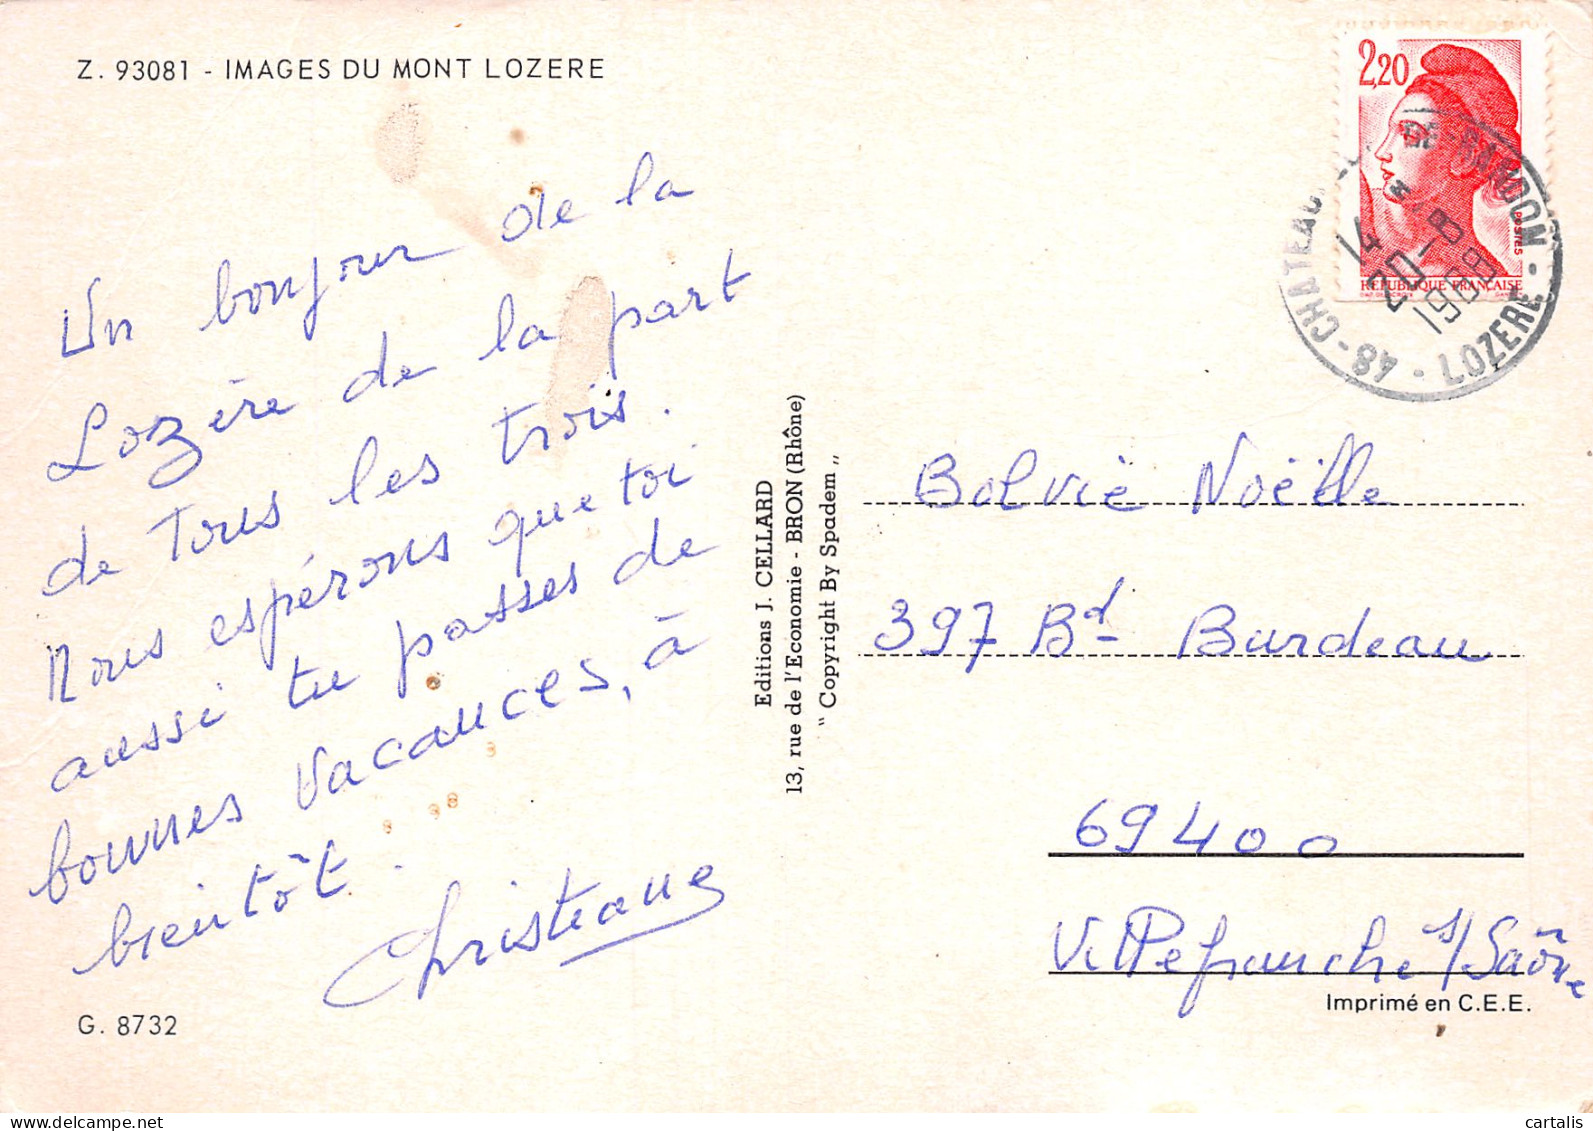 Z. 93081 - IMAGES DU MONT LOZERE
Un bonjour de la
Lozère de la part
de Tous les trois.
Nous espérons que toi
aussi tu passes de
bonnes vacances, à
bientôt.
Christiane
G. 8732
Editions J. CELLARD
13, rue de l'Economie - BRON (Rhône)
" Copyright By Spadem „
2,20
POSTES
REPUBLIQUE FRANÇAISE
48 - CHATEAUNEUF DE-RANDON - LOZERE -
14 H
20-8
1989
Bolvie Noëlle
397 Bd Burdeau
69400
Villefranche s/Saône
Imprimé en C.E.E.
cartalis delcampe.net